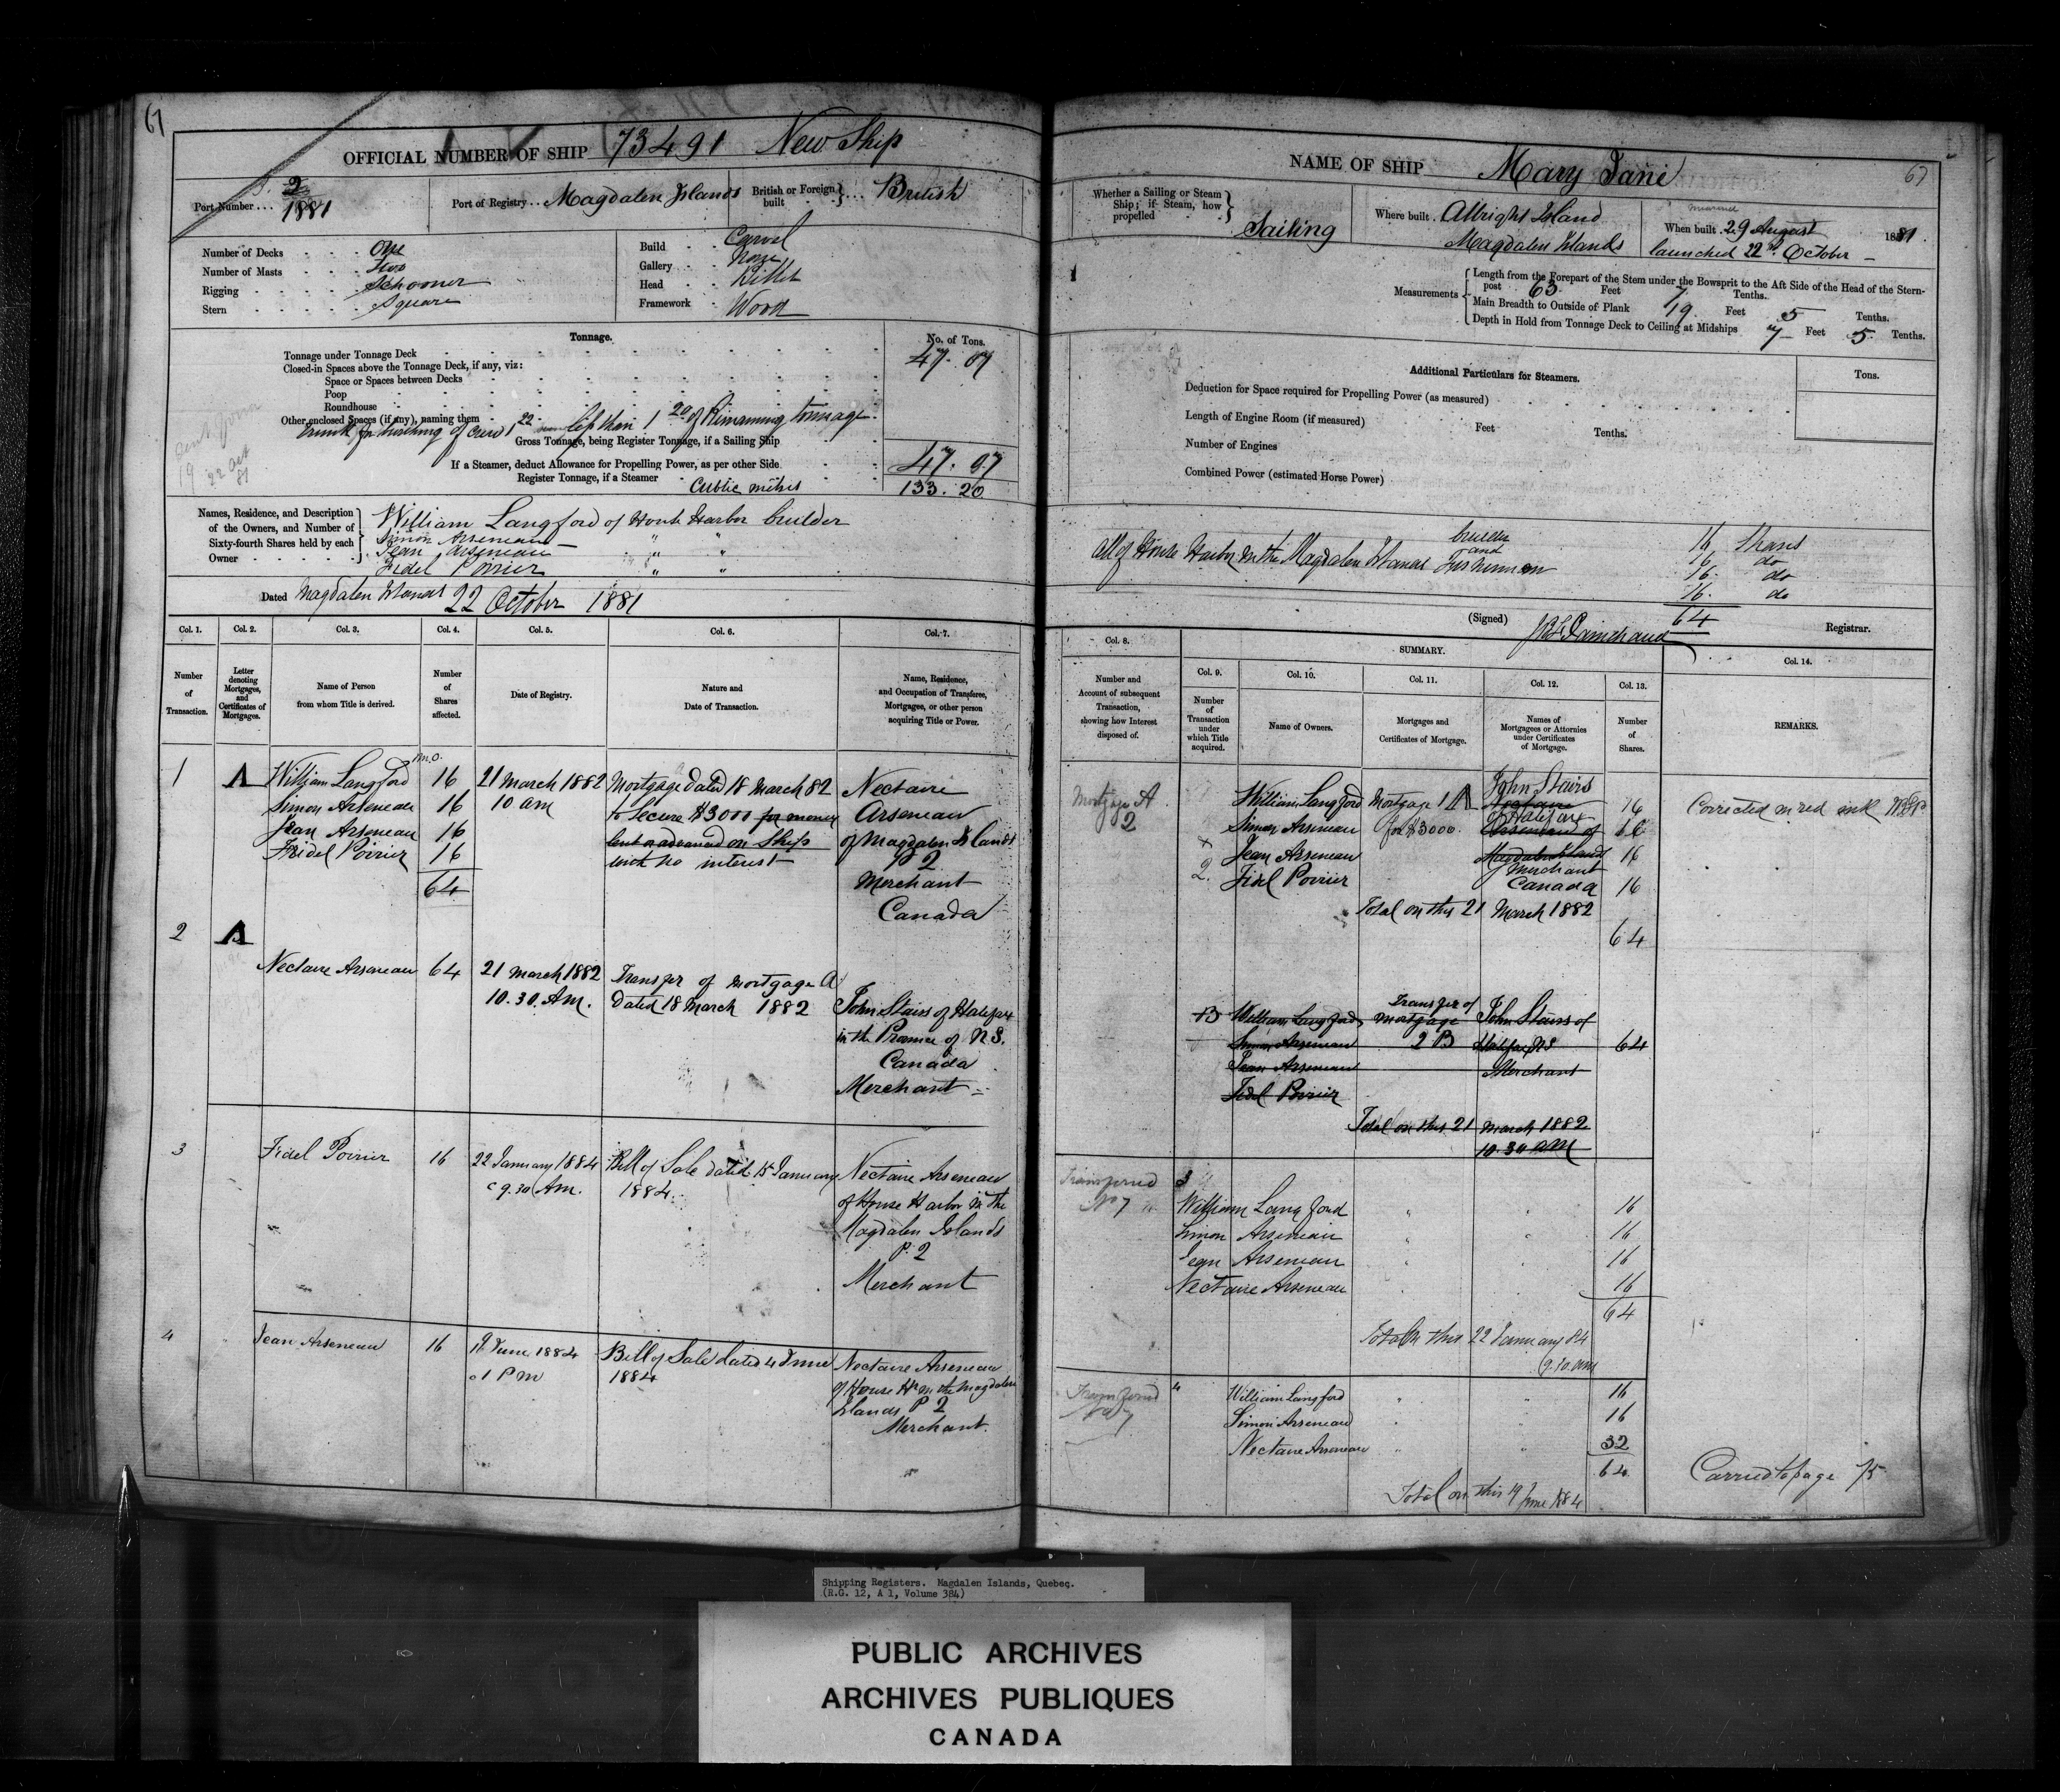 67
OFFICIAL NUMBER OF SHIP 73491 New Ship
Port Number . . . 2 1881
Port of Registry . . Magdalen Islands
British or Foreign built } . . . British
Number of Decks . . . . One
Number of Masts . . . . two
Rigging . . . . . Schooner
Stern . . . . . Square
Build . . Carvel
Gallery . . None
Head . . Billet
Framework . . Wood
Tonnage.
No. of Tons.
Tonnage under Tonnage Deck 47. 07
Closed-in Spaces above the Tonnage Deck, if any, viz:
Space or Spaces between Decks
Poop
Roundhouse
Other enclosed Spaces (if any), naming them
trunk for berthing of crew 1 22 less than 1 20 of Remaining tonnage
Gross Tonnage, being Register Tonnage, if a Sailing Ship 47. 07
If a Steamer, deduct Allowance for Propelling Power, as per other Side
Register Tonnage, if a Steamer
Cubic metres 133. 20
19 22 Oct 81
Names, Residence, and Description of the Owners, and Number of Sixty-fourth Shares held by each Owner
William Langford of House Harbor builder
Simon Arseneau " "
Jean Arseneau " "
Fidel Poirier " "
Dated Magdalen Islands 22 October 1881
Col. 1. Col. 2. Col. 3. Col. 4. Col. 5. Col. 6. Col. 7.
Number of Transaction.
Letter denoting Mortgages, and Certificates of Mortgages.
Name of Person from whom Title is derived.
Number of Shares affected.
Date of Registry.
Nature and Date of Transaction.
Name, Residence, and Occupation of Transferee, Mortgagee, or other person acquiring Title or Power.
1 A
William Langford 16
Simon Arseneau 16
Jean Arseneau 16
Fidel Poirier 16
64
21 March 1882
10 am
Mortgage dated 18 March 82
to Secure $3000 for money
lent or advanced on Ship
with no interest
Nectaire
Arseneau
of Magdalen Islands
P 2
Merchant
Canada
2 A
Nectaire Arseneau 64
21 March 1882
10.30. Am.
Transfer of Mortgage A
dated 18 March 1882
John Stairs of Halifax
in the Province of N.S.
Canada
Merchant
3
Fidel Poirier 16
22 January 1884
9.30 Am.
Bill of Sale dated 15 January
1884.
Nectaire Arseneau
of House Harbor in the
Magdalen Islands
P. 2
Merchant
4
Jean Arseneau 16
19 June 1884
1 Pm
Bill of Sale dated 4 June
1884
Nectaire Arseneau
of House Hr in the Magdalen
Islands P 2
Merchant.
67
NAME OF SHIP Mary Jane
Whether a Sailing or Steam Ship; if Steam, how propelled } Sailing
Where built . Allright Island
Magdalen Islands
When built . 29 August 1881.
launched 22nd October
Measurements
Length from the Forepart of the Stem under the Bowsprit to the Aft Side of the Head of the Stern-
post 63. Feet 7 Tenths.
Main Breadth to Outside of Plank 19. Feet 5 Tenths.
Depth in Hold from Tonnage Deck to Ceiling at Midships 7 Feet 5 Tenths.
Additional Particulars for Steamers.
Tons.
Deduction for Space required for Propelling Power (as measured)
Length of Engine Room (if measured) Feet Tenths.
Number of Engines
Combined Power (estimated Horse Power)
All of House Harbor in the Magdalen Islands
builder and Fishermen
16 Shares
16 do
16. do
16. do
64
(Signed) Painchaud Registrar.
Col. 8.
SUMMARY.
Col. 9. Col. 10. Col. 11. Col. 12. Col. 13. Col. 14.
Number and Account of subsequent Transaction, showing how Interest disposed of.
Number of Transaction under which Title acquired.
Name of Owners.
Mortgages and Certificates of Mortgage.
Names of Mortgagees or Attornies under Certificates of Mortgage.
Number of Shares.
REMARKS.
Mortgage A
2
William Langford
Simon Arseneau
Jean Arseneau
Fidel Poirier
Mortgage 1 A
for $3000.
John Stairs
Nectaire
of Halifax
Arseneau of
Magdalen Island
Merchant
Canada
16
16
16
16
Total on this 21 March 1882
64
Corrected in red ink
B
William Langford
Simon Arseneau
Jean Arseneau
Fidel Poirier
Transfer of
Mortgage
2 B
John Stairs of
Halifax NS
Merchant
64
Total on this 21 March 1882
10.30 am
Transferred
No 7
3
William Langford 16
Simon Arseneau 16
Jean Arseneau 16
Nectaire Arseneau 16
64
Total on this 22 January 84
9.30. am
Transferred
No 7
4
William Langford 16
Simon Arseneau 16
Nectaire Arseneau 32
64
Total on this 19 June 1884
Carried to page 75
Shipping Registers. Magdalen Islands, Quebec.
(R.G. 12, A 1, Volume 384)
PUBLIC ARCHIVES
ARCHIVES PUBLIQUES
CANADA